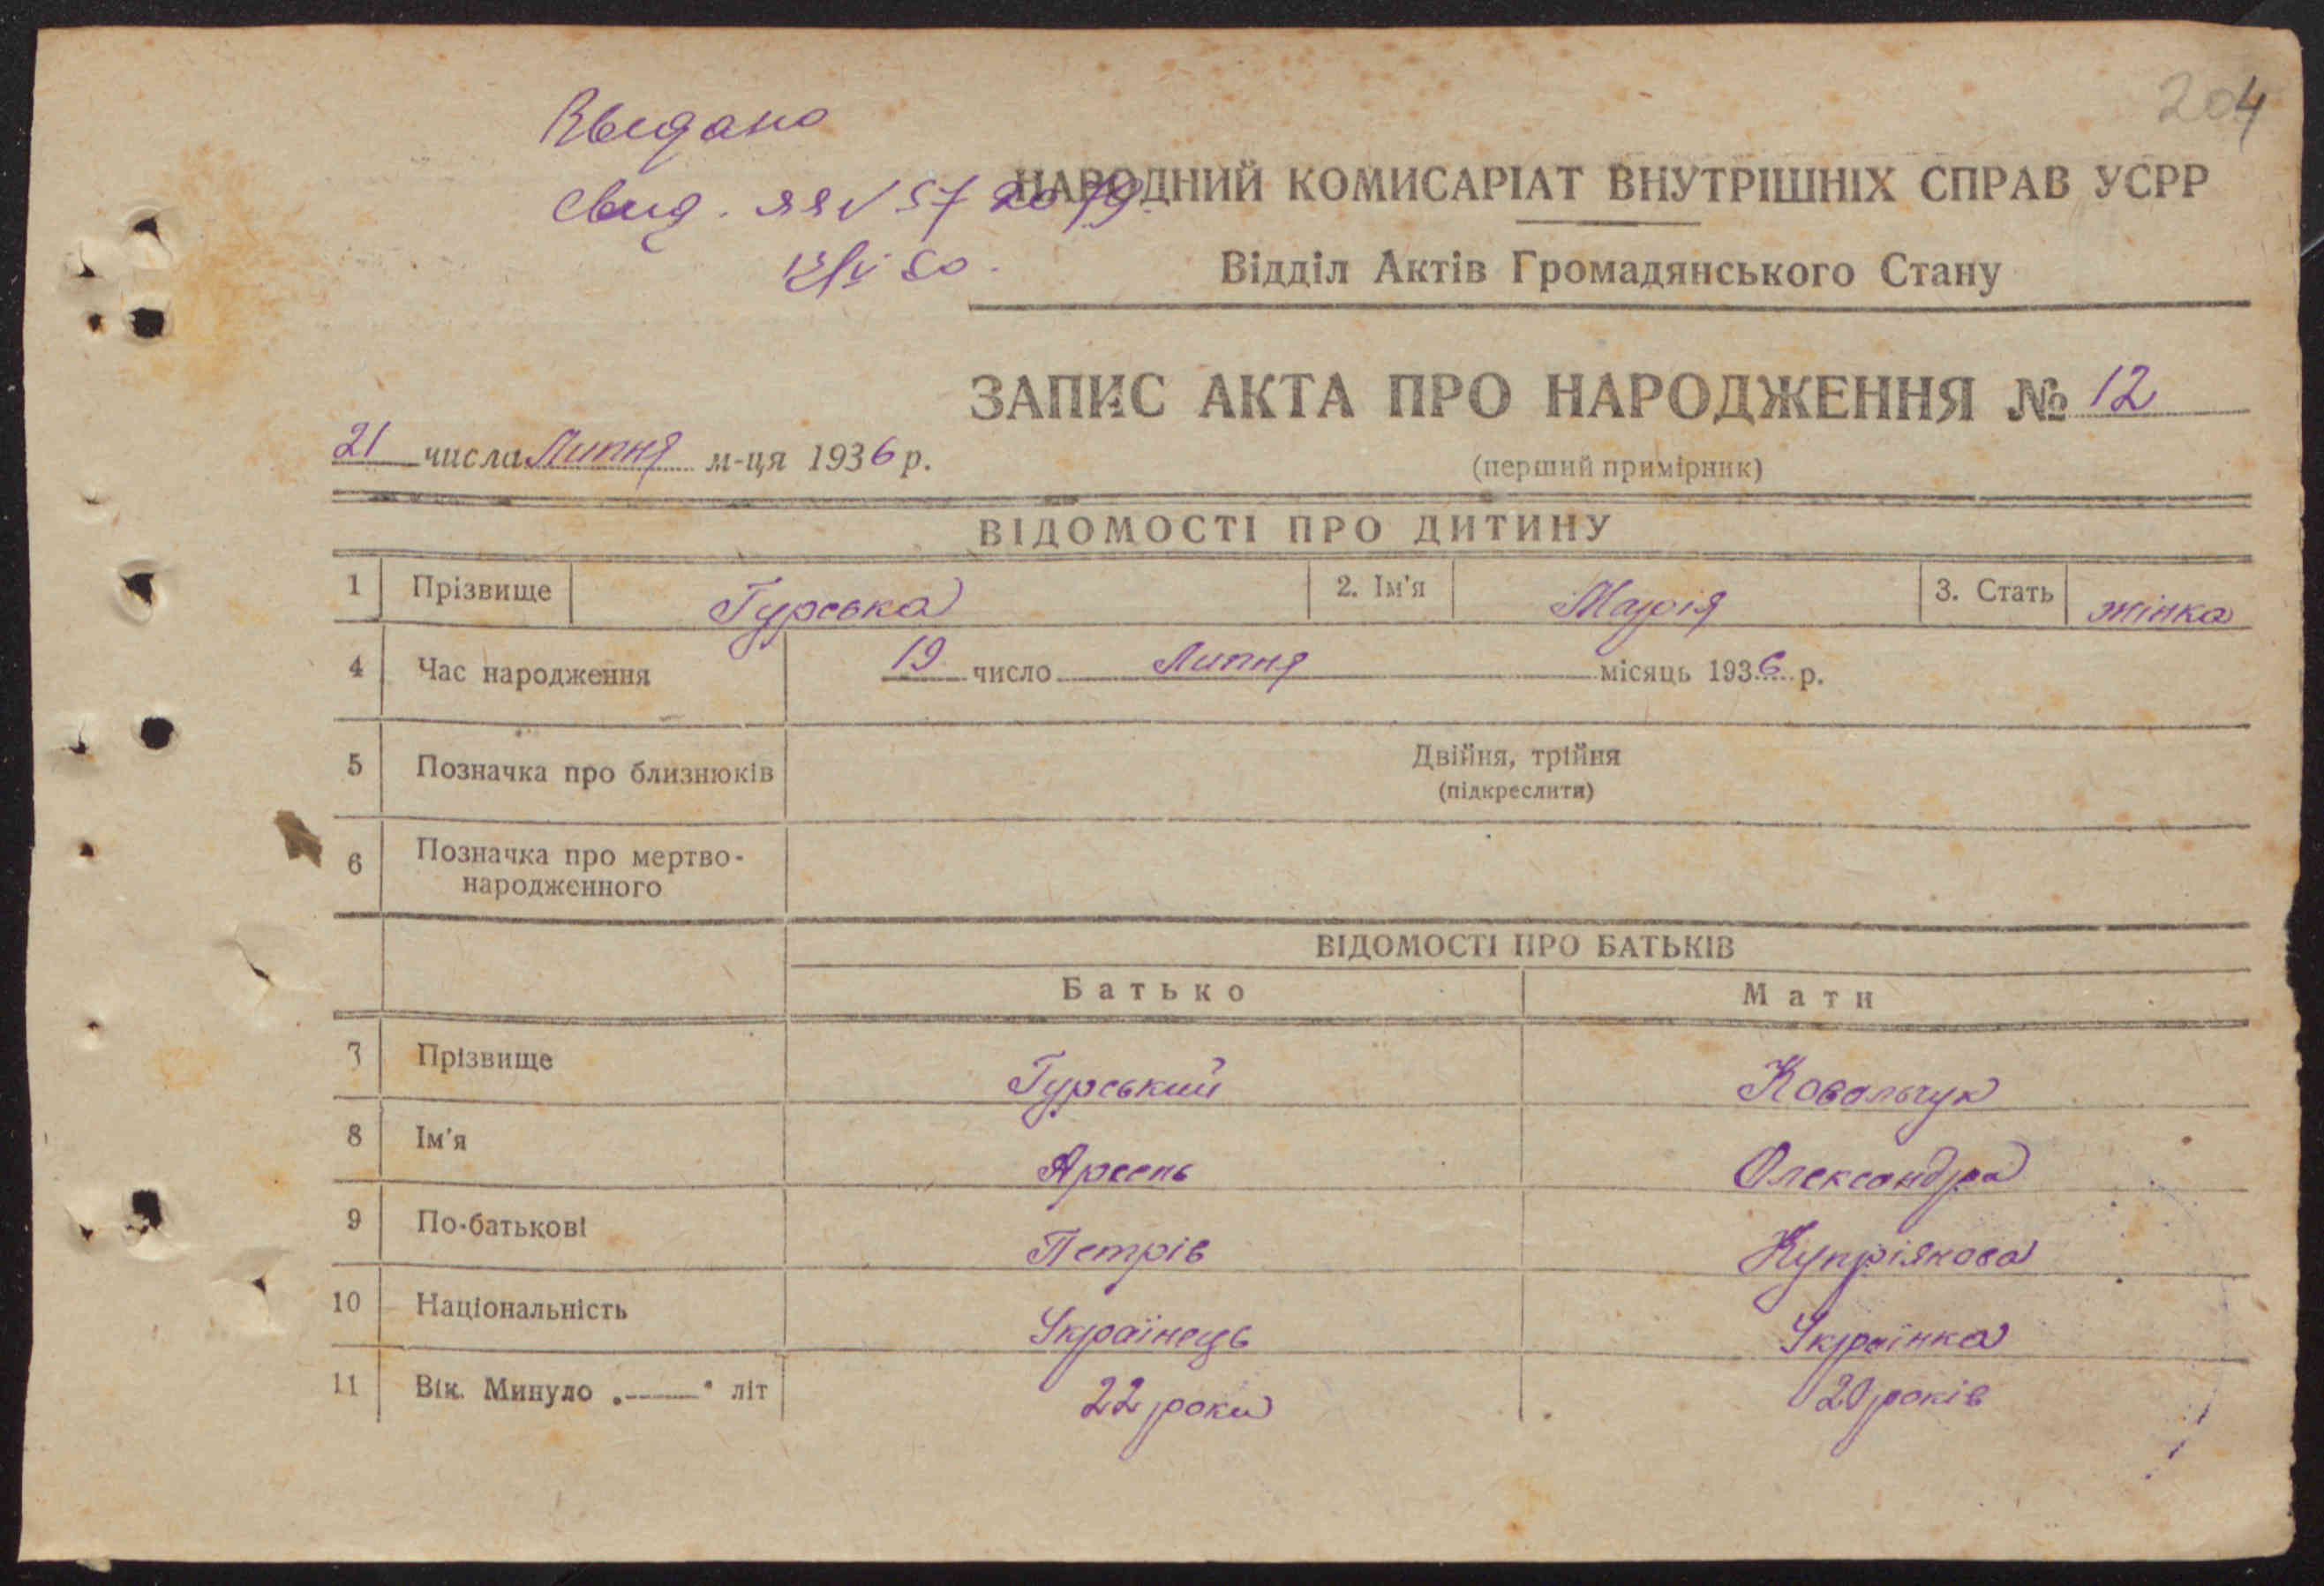 204
Выдано
Свид.
НАРОДНИЙ КОМИСАРІАТ ВНУТРІШНІХ СПРАВ УСРР
Відділ Актів Громадянського Стану
ЗАПИС АКТА ПРО НАРОДЖЕННЯ № 12
21 числа Липня м-ця 1936 р.
(перший примірник)
ВІДОМОСТІ ПРО ДИТИНУ
1 Прізвище Гурська 2. Ім'я Марія 3. Стать жінка
4 Час народження 19 число Липня місяць 1936 р.
5 Позначка про близнюків Двійня, трійня
(підкреслити)
6 Позначка про мертво-
народженного
ВІДОМОСТІ ПРО БАТЬКІВ
Батько Мати
7 Прізвище Гурський Ковальчук
8 Ім'я Арсень Олександра
9 По-батькові Петрів Купріянова
10 Національність Українець Українка
11 Вік. Минуло „——“ літ 22 роки 20 років